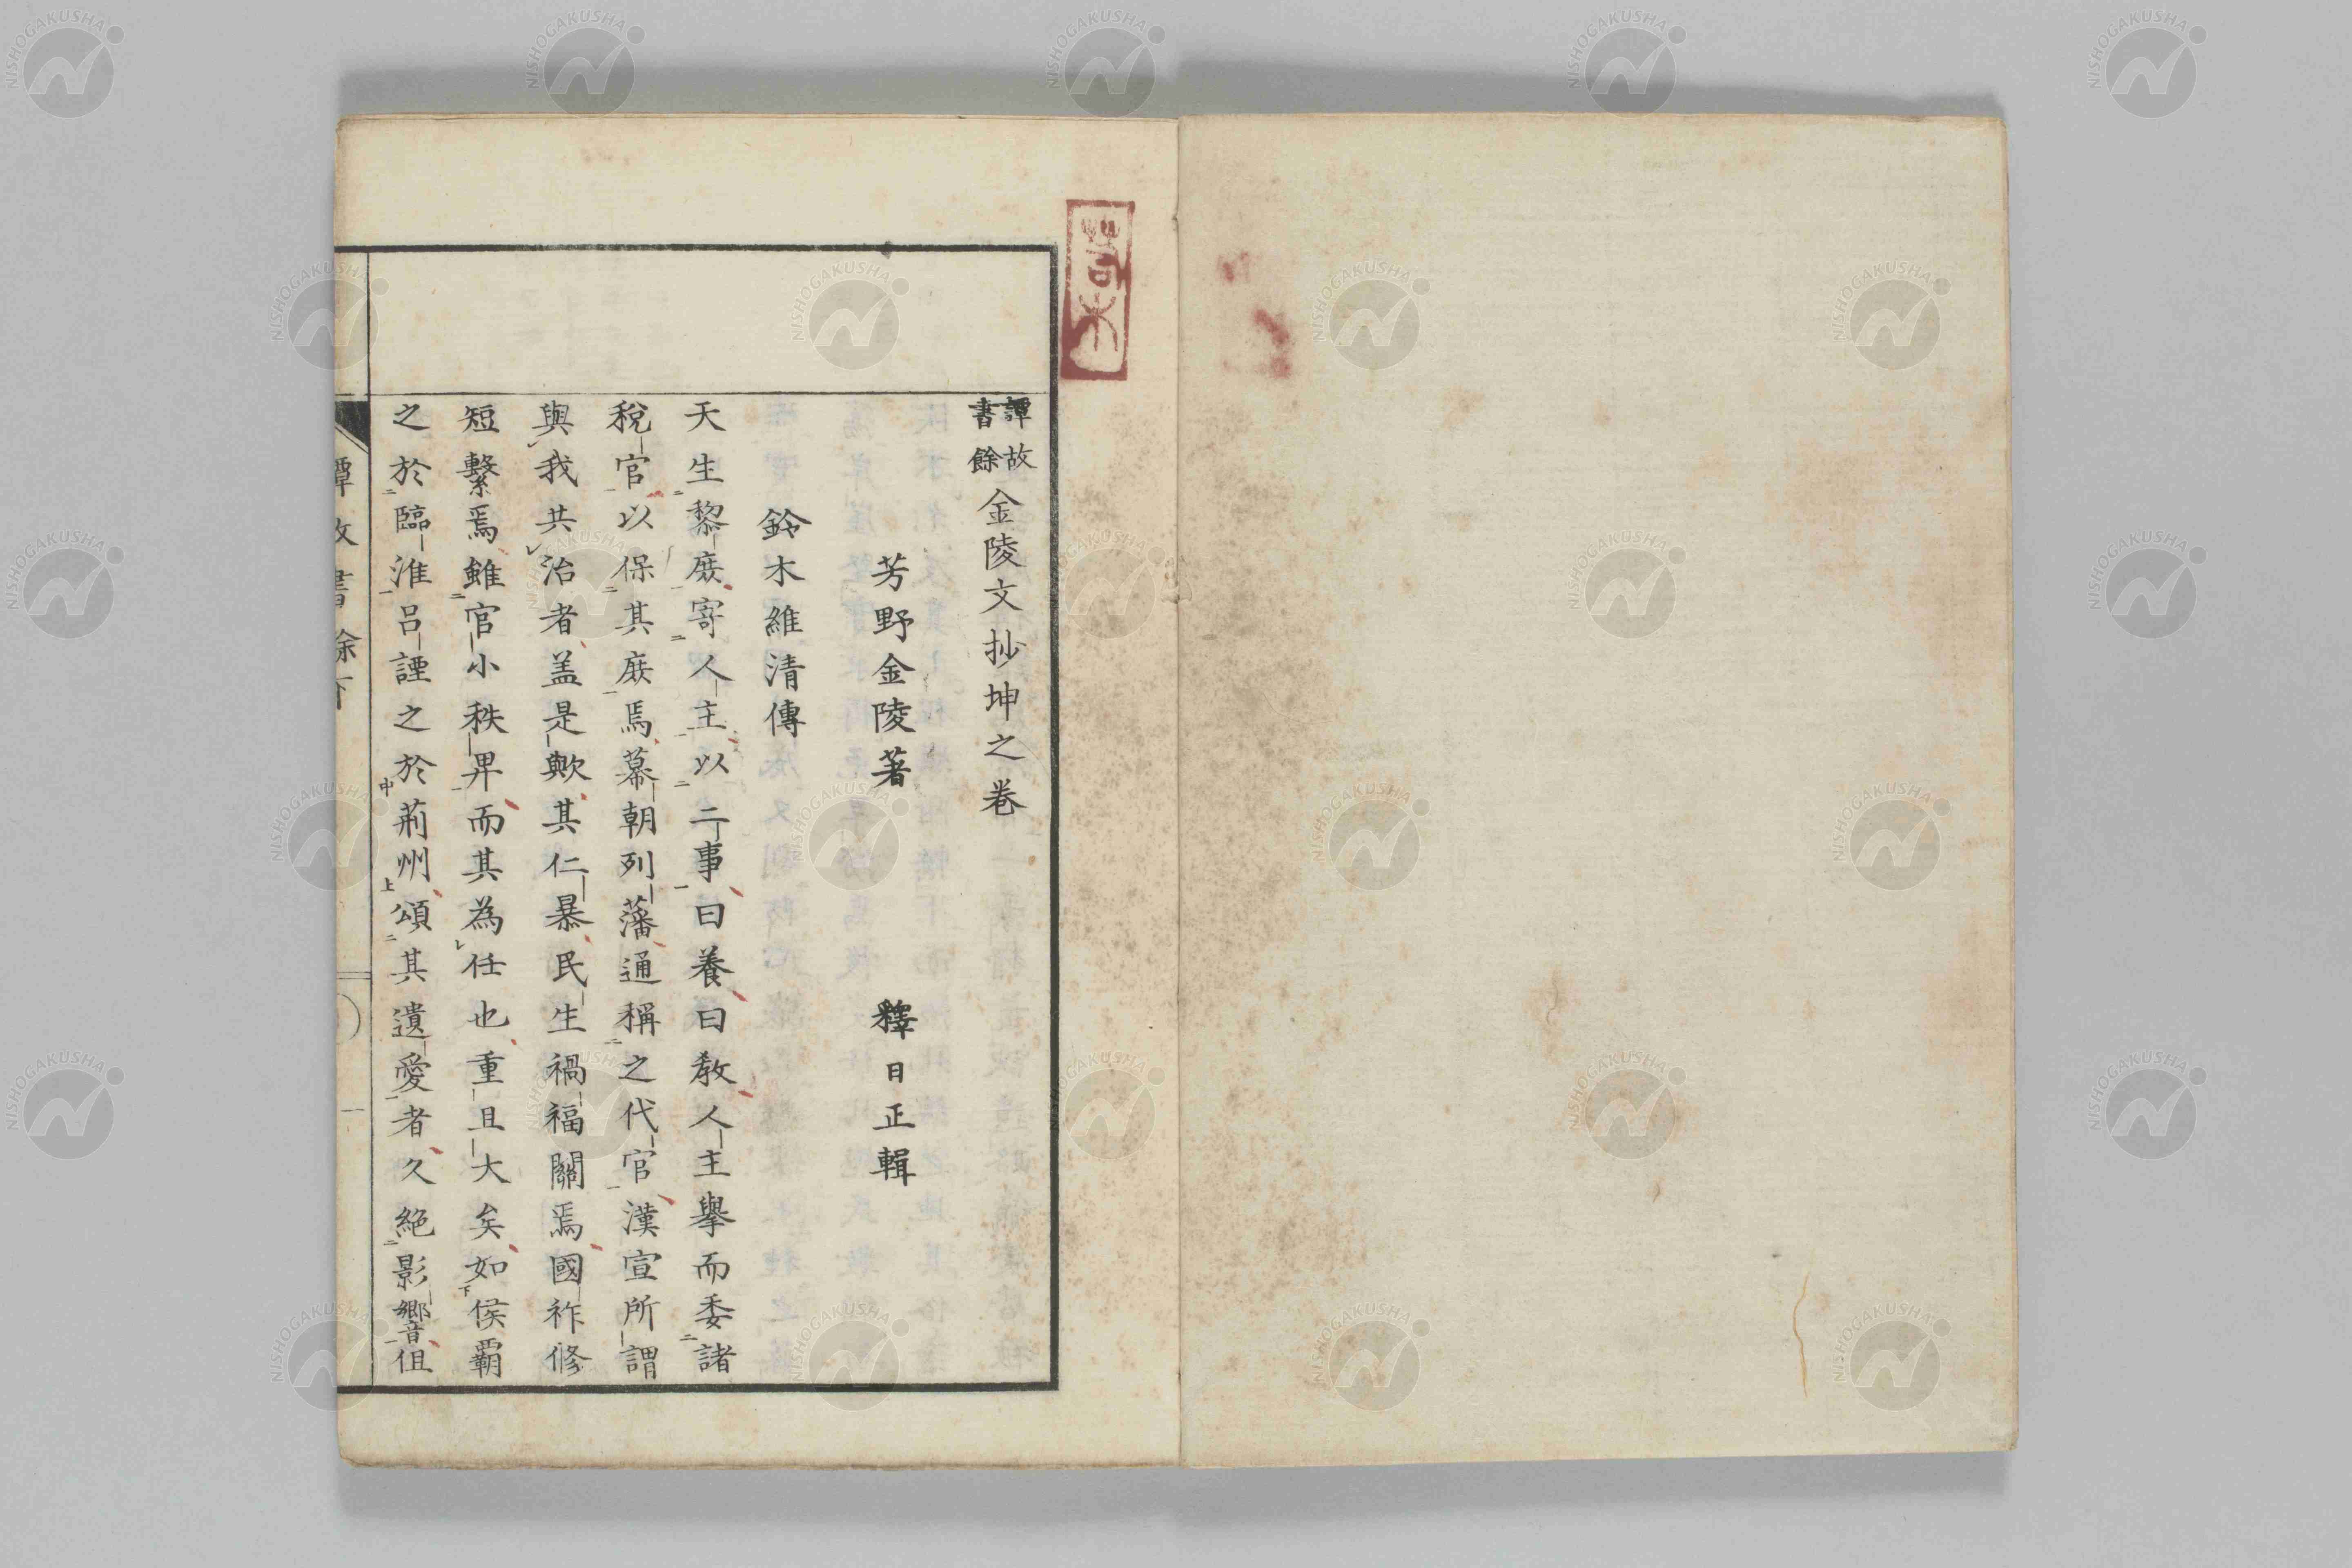 譚故書餘 金陵文抄坤之卷
芳野金陵著 釋日正輯
鈴木維清傳
天生黎庶寄人主以二事曰養曰教人主擧而委諸
稅官以保其庶焉幕朝列藩通稱之代官漢宣所謂
與我共治者盖是歟其仁暴民生禍福關焉國祚修
短繫焉雖官小秩畀而其為任也重且大矣如侯霸
之於臨淮呂諲之於荊州頌其遺愛者久絕影響伹
譚故書餘下
一
NISHOGAKUSHA